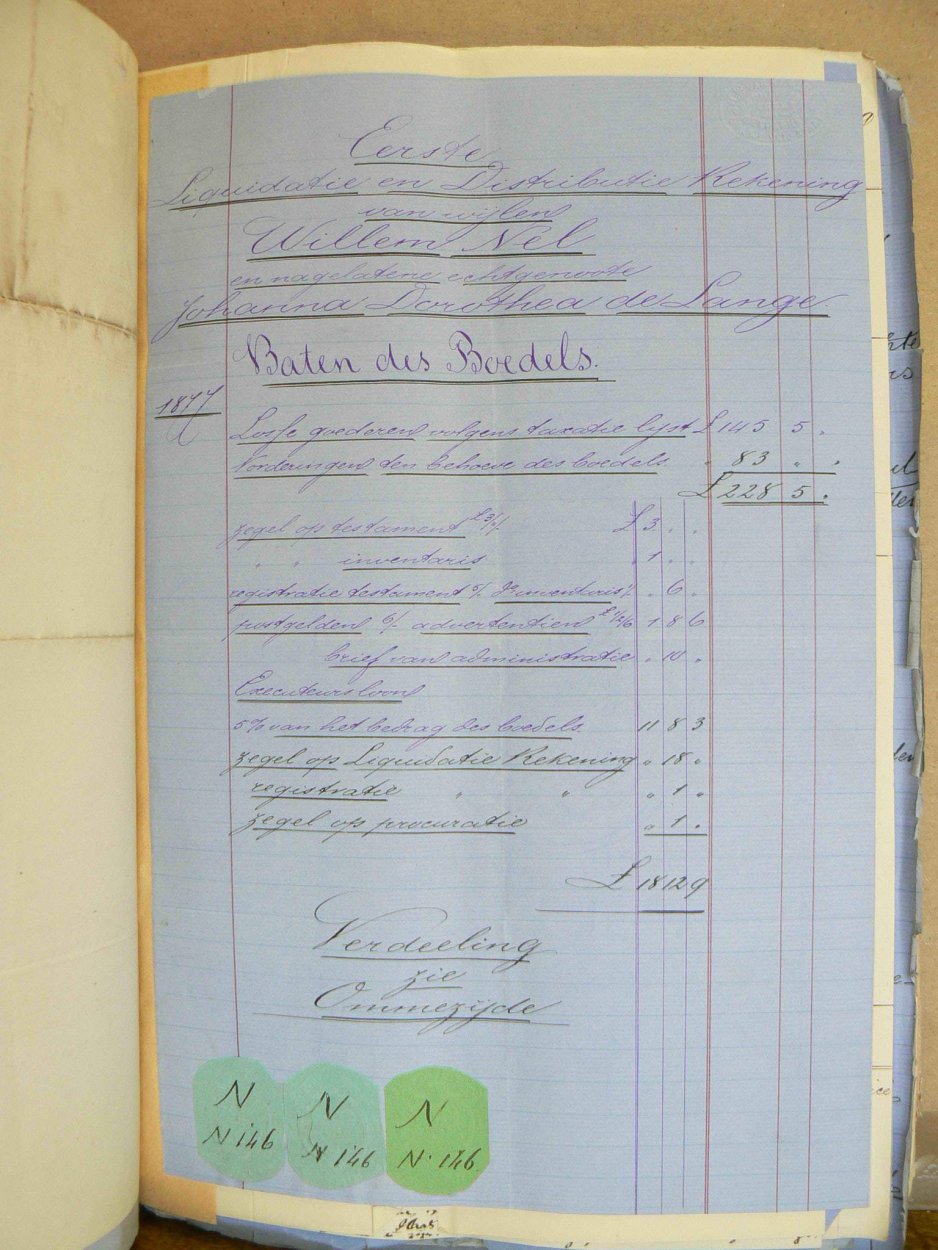 Eerste
Liquidatie en Distributie Rekening
van wijlen
Willem Nel
en nagelatene echtgenoote
Johanna Dorothea de Lange
Baten des Boedels.
1877
Losse goederen volgens taxatie lijst £ 145 5 "
Vorderingen ten behoeve des boedels " 83 " "
£ 228 5 "
zegel op testament £ 3 " "
" " inventaris " 1 " "
registratie testament 5/ inventaris 1/ " 6 "
postgelden 6/- advertentien £1/2/6 1 8 6
brief van administratie " 10 "
Executeursloon
5% van het bedrag des boedels 11 8 3
zegel op Liquidatie Rekening " 18 "
registratie " " " 1 "
zegel op procuratie " 1 "
£ 18 12 9
Verdeeling
zie
Ommezijde
N
N 146
N
N 146
N
N. 146.